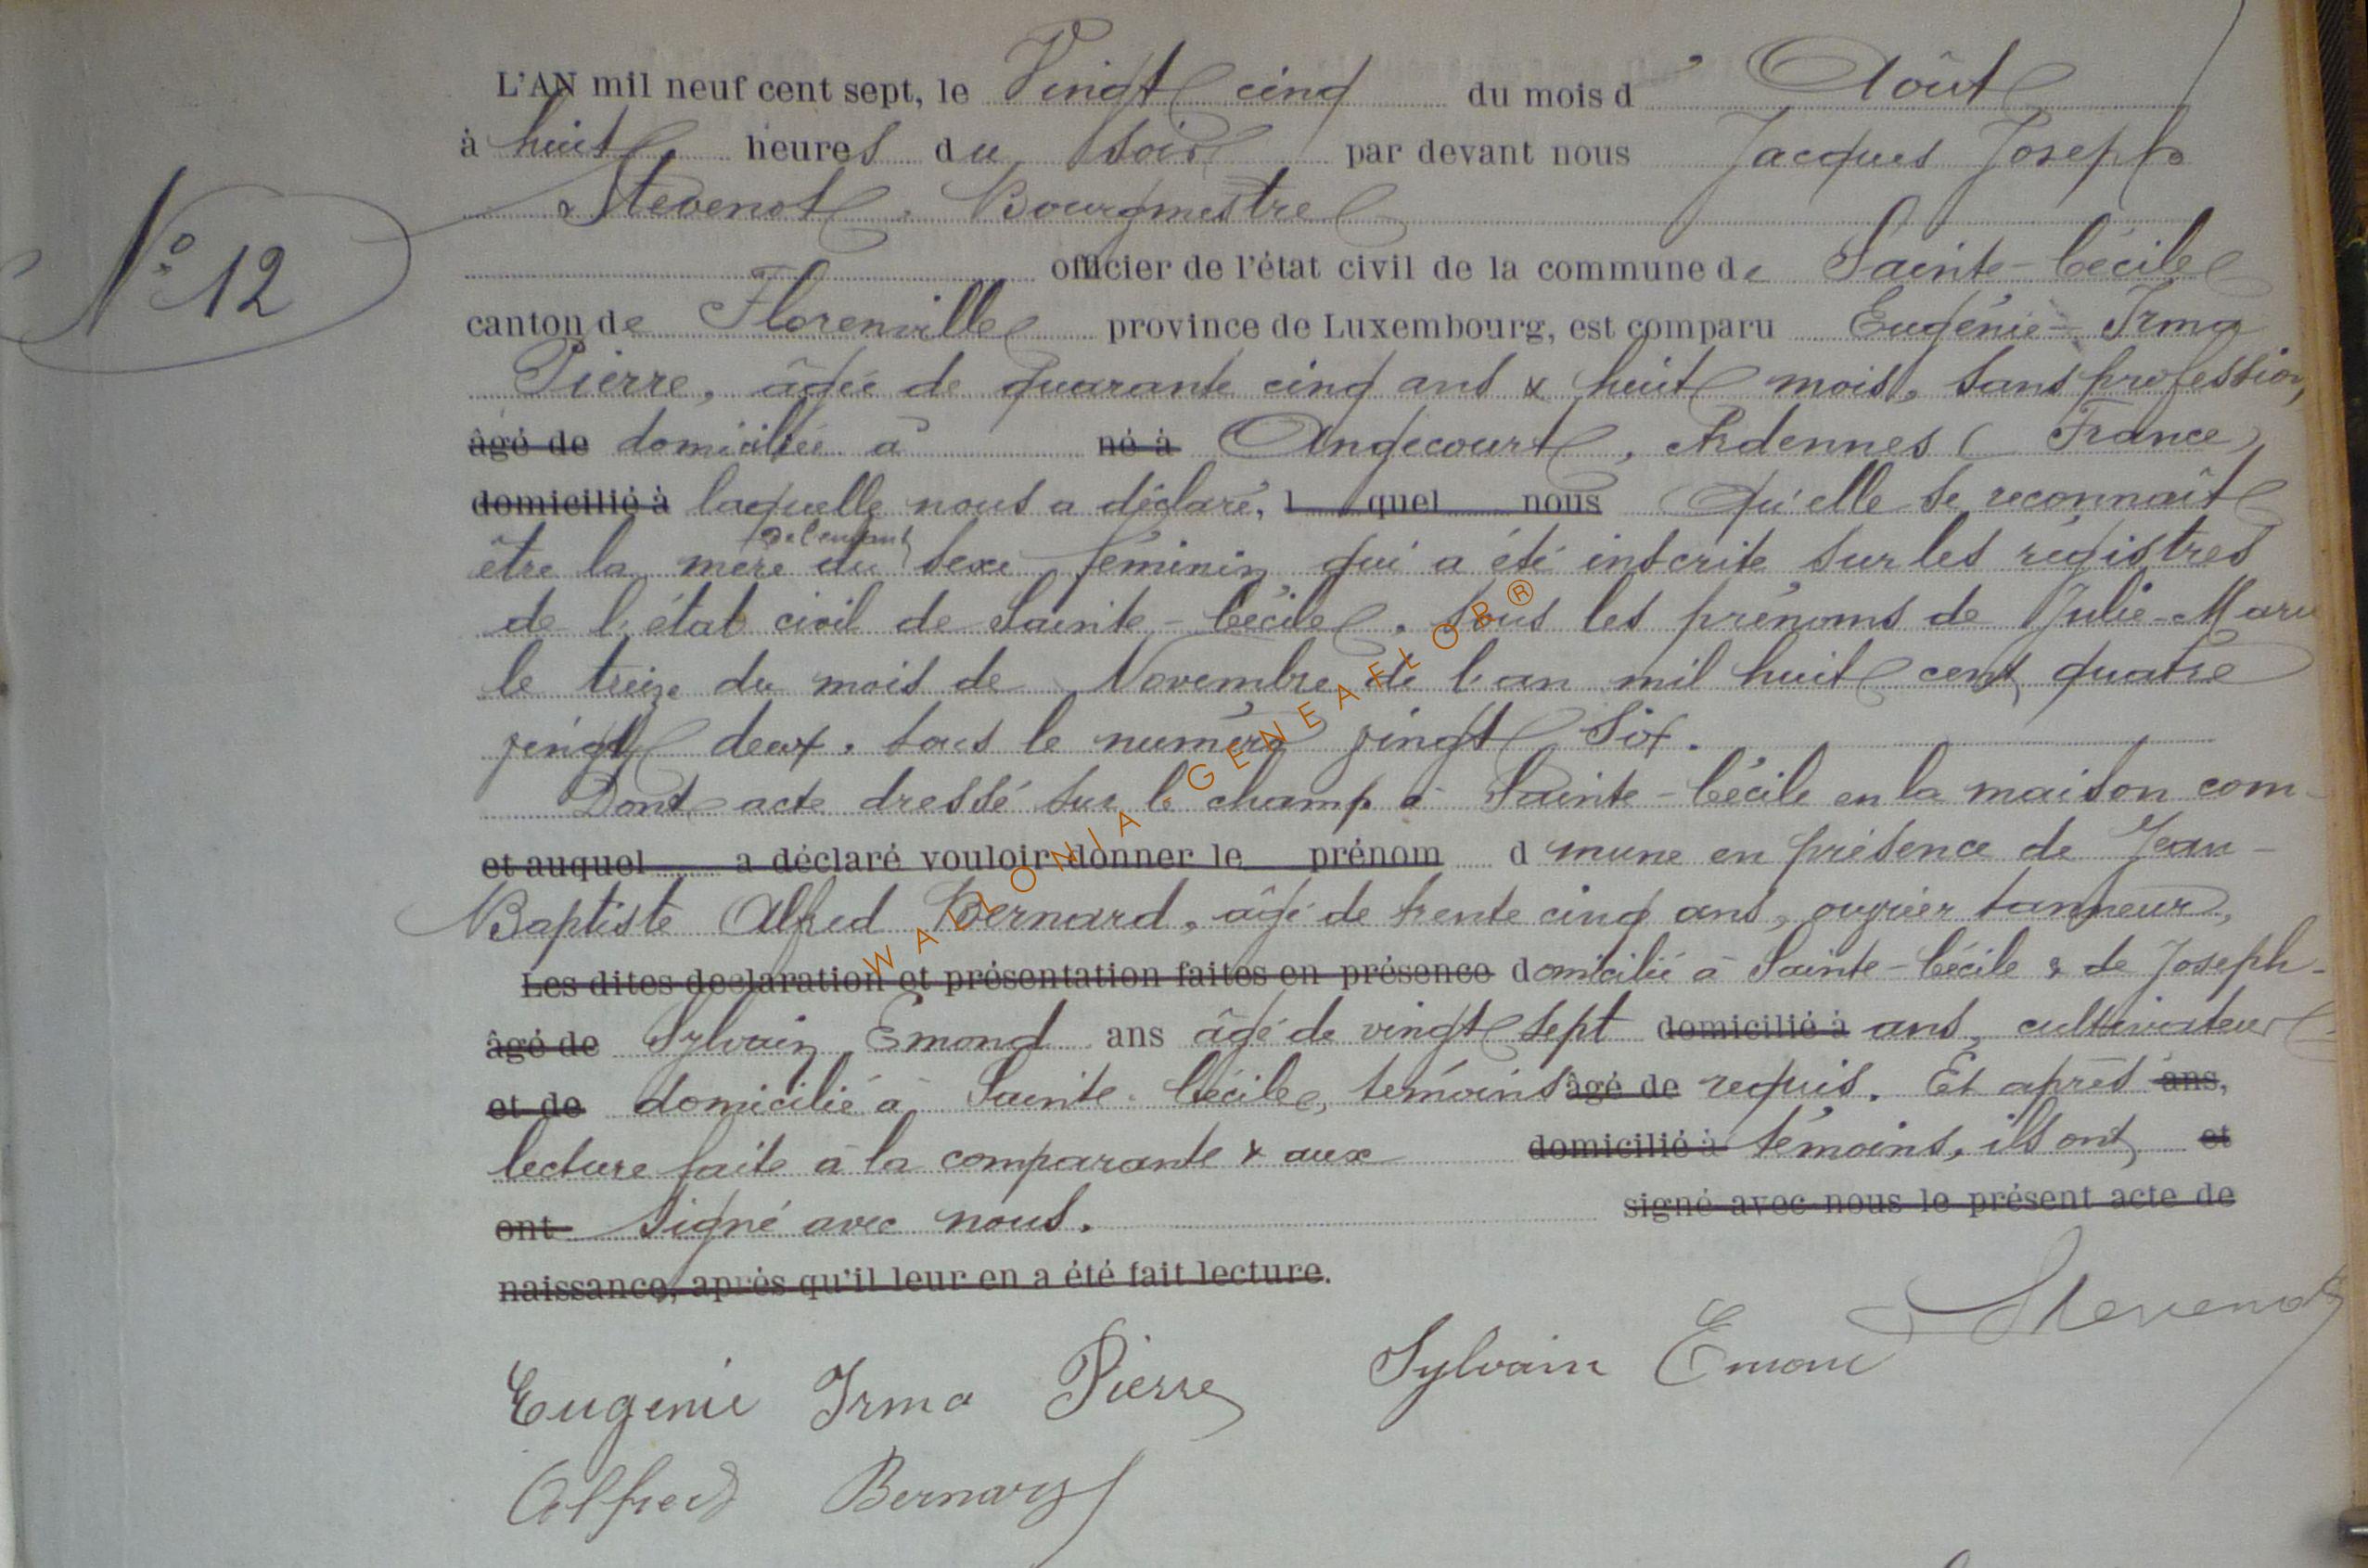 L'AN mil neuf cent sept, le Vingt cinq du mois d' Août
à huit heures du soir par devant nous Jacques Joseph
Stevenot, Bourgmestre
officier de l'état civil de la commune de Sainte-Cécile
N° 12
canton de Florenville province de Luxembourg, est comparu Eugénie-Irma
Pierre, âgée de quarante cinq ans & huit mois, sans profession,
âgé de domiciliée à né à Angecourt, Ardennes (France)
domicilié à laquelle nous a déclaré, l quel nous qu'elle se reconnaît
de l'enfant
être la mère du sexe féminin qui a été inscrite sur les régistres
de l'état civil de Sainte-Cécile, sous les prénoms de Julie-Marie
le treize du mois de Novembre de l'an mil huit cent quatre
vingt deux, sous le numéro vingt six.
Dont acte dressé sur le champ à Sainte-Cécile en la maison com-
et auquel a déclaré vouloir donner le prénom d mune en présence de Jean-
Baptiste Alfred Bernard, âgé de trente cinq ans, ouvrier tanneur,
Les dites declaration et présentation faites en présence domicilié à Sainte-Cécile & de Joseph-
âgé de Sylvain Emond ans âgé de vingt sept domicilié à ans, cultivateur
et de domicilié à Sainte-Cécile, temoins âgé de requis. Et après ans,
lecture faite à la comparante & aux domicilié à témoins, ils ont et
ont signé avec nous. signé avec nous le présent acte de
naissance, après qu'il leur en a été fait lecture.
Stevenot
Eugenie Irma Pierre Sylvain Emond
Alfred Bernard
WALLONIA-GENEAFLOR®